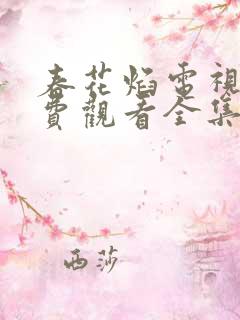 春花焰電視
費觀看全集
西莎